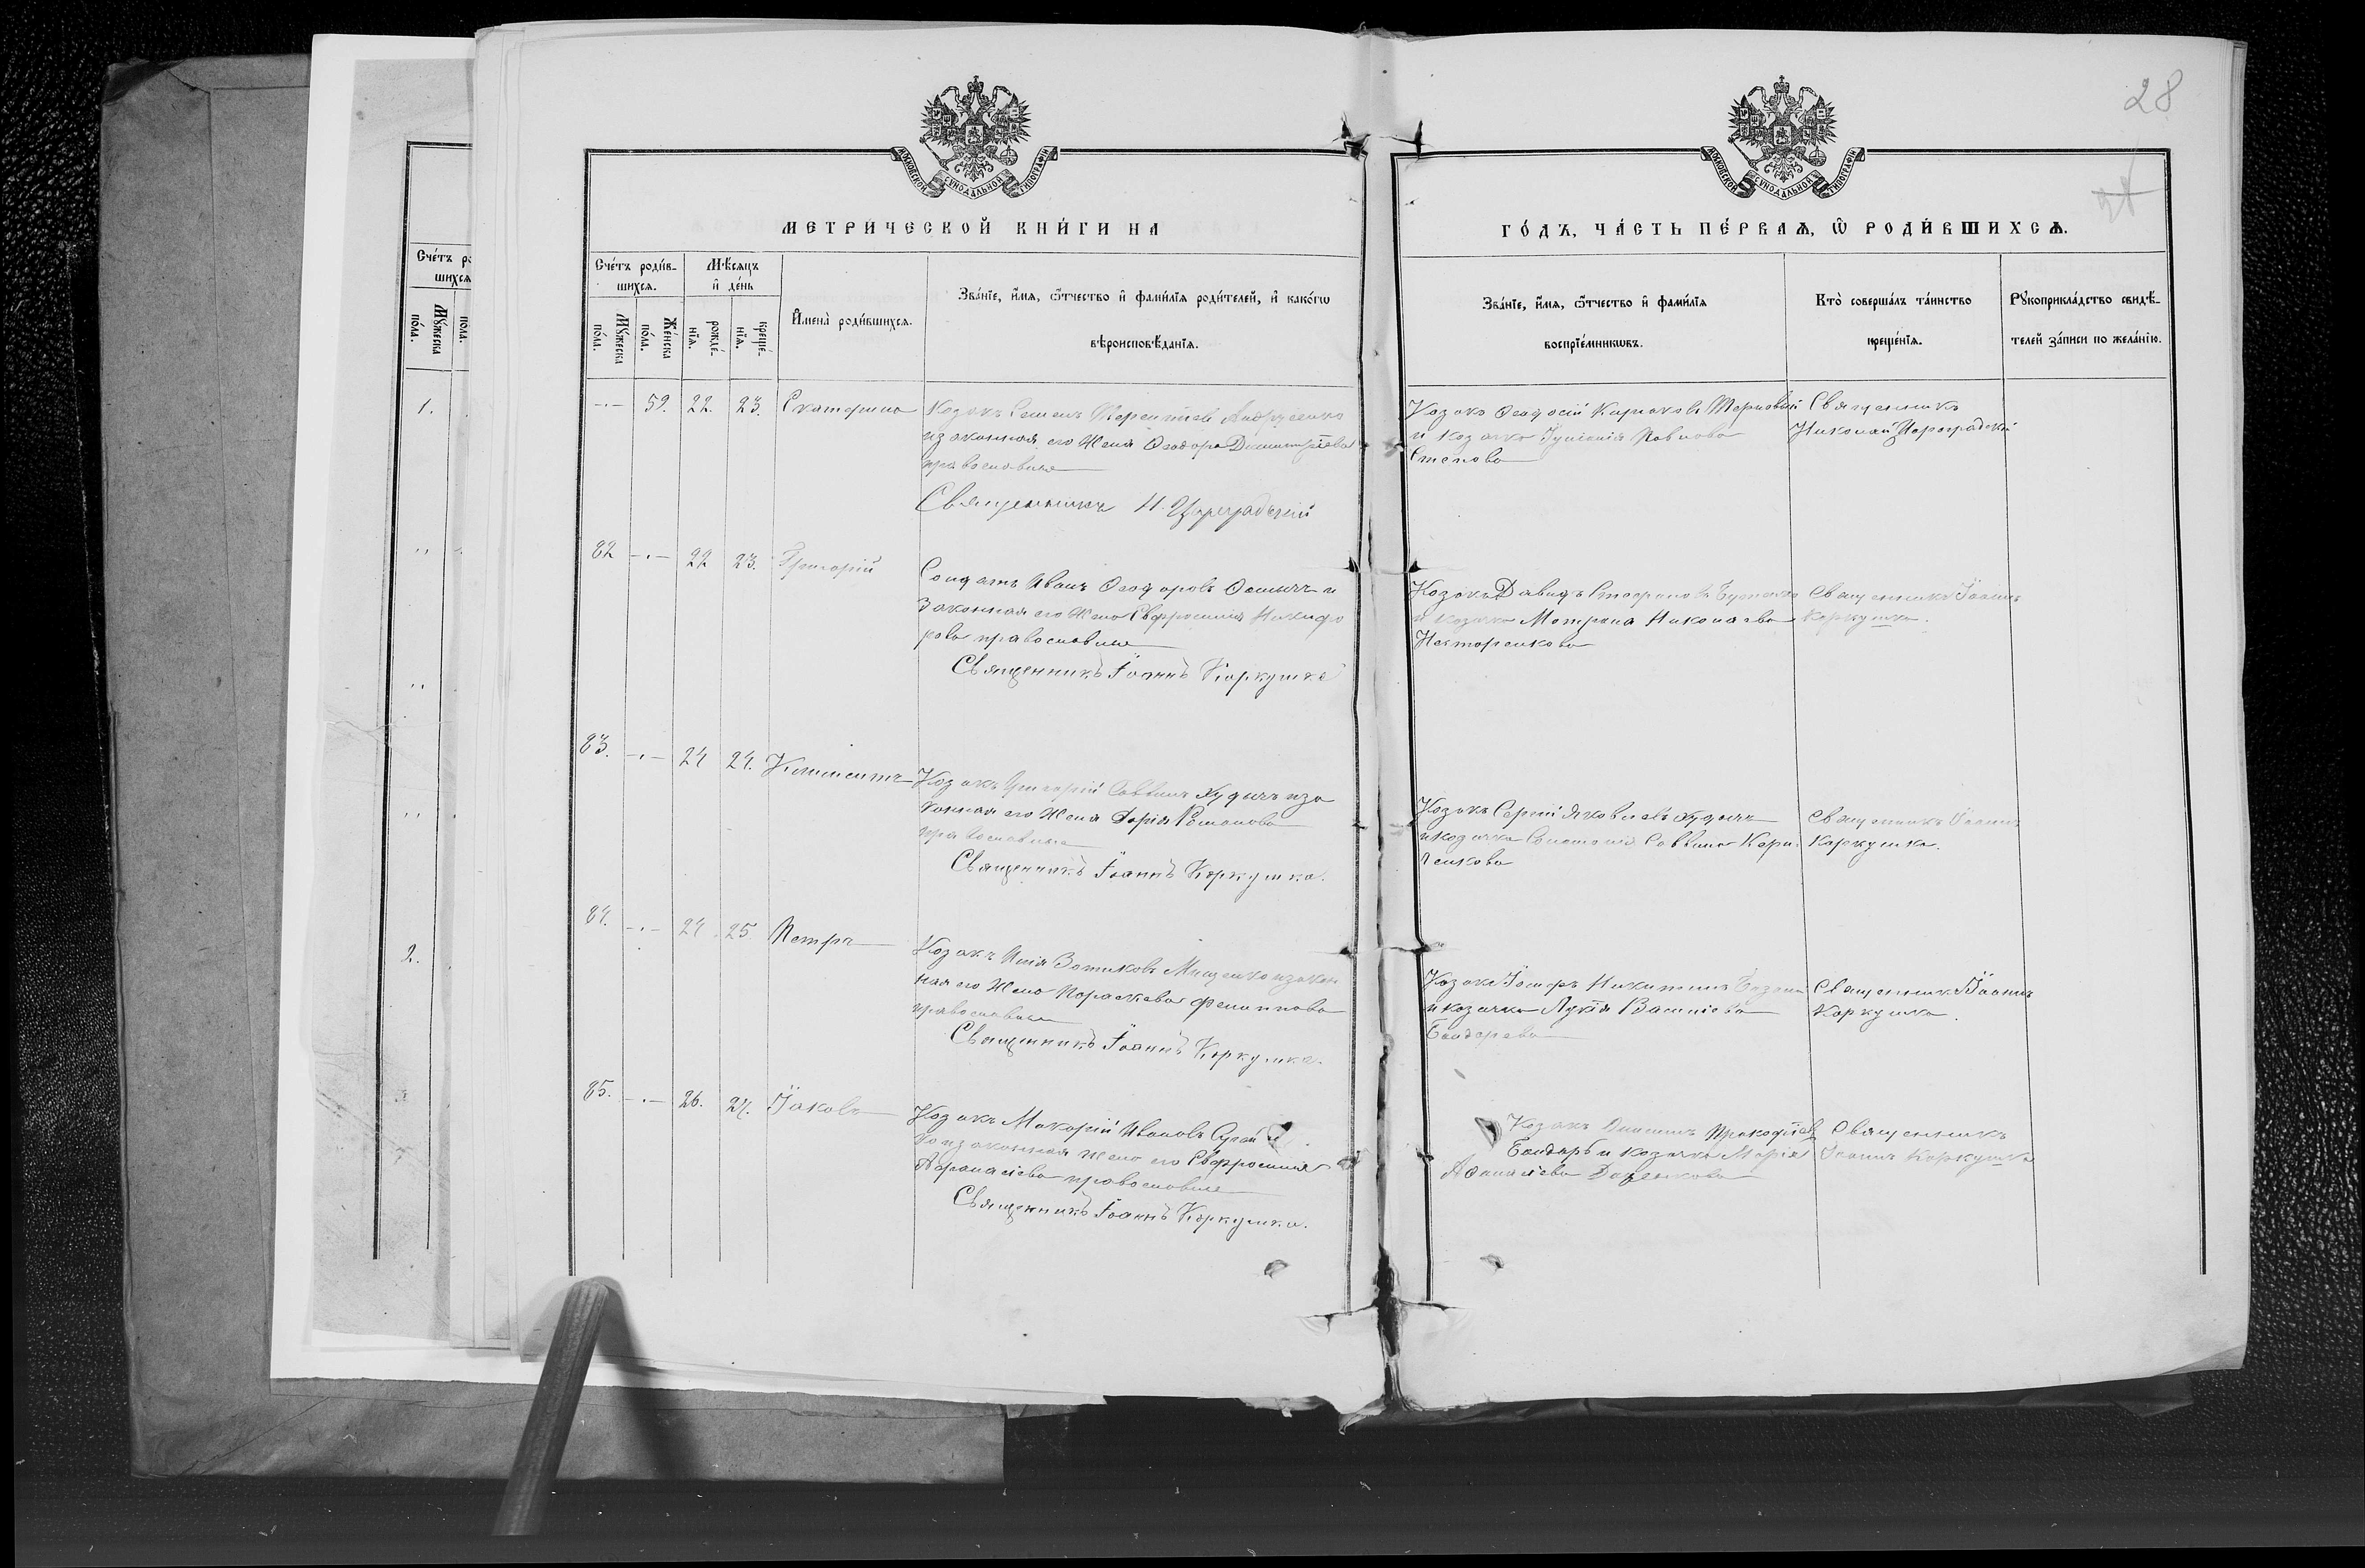 28
МОСКОВСКОЙ СѴНОДАЛЬНОЙ ТИПОГРАФІИ
МОСКОВСКОЙ СѴНОДАЛЬНОЙ ТИПОГРАФІИ
МЕТРИ́ЧЕСКОЙ КНИ́ГИ НА
ГО́ДЪ, ЧА́СТЬ ПЕ́РВАѦ, Ѡ҆ РОДИ́ВШИХСѦ.
Сче́тъ роди́в-
шихсѧ.
Мꙋ́жеска
по́ла.
Же́нска
по́ла.
Мѣ́сѧцъ
и҆ де́нь
рожде́-
нїѧ.
креще́-
нїѧ.
И҆мена̀ роди́вшихсѧ.
Зва́нїе, и҆́мѧ, ѻ҆́тчество и҆ фами́лїѧ роди́телей, и҆ како́гѡ
вѣроисповѣ́данїѧ.
Зва́нїе, и҆́мѧ, ѻ҆́тчество и҆ фами́лїѧ
воспрїе́мникѡвъ.
Кто̀ соверша́лъ та́инство
креще́нїѧ.
Рꙋкоприкла́дство свидѣ́-
телей за́писи по жела́нїю.
59. 22. 23. Екатерина
Козакъ Семенъ Терентіевъ Андрусенко
и законная его жена Ѳеодора Димитріева
православные
Священникъ Н. Цареградскій
Козакъ Ѳеодосій Карповъ Терновый
и козачка Іуліанія Павлова
Священникъ
Николай Цареградскій
82 22 23. Григорій
Солдатъ Иванъ Ѳеодоровъ и
законная его жена Евфросинія Никифо
рова православные
Священникъ Іоаннъ Коркушка
Козакъ Давидъ Стефановъ
и козачка Матрона Николаева
Нестеренкова
Священникъ Іоаннъ
Коркушка.
83. 24 24. Климентъ
Козакъ Григорій Саввинъ Худичъ и за
конная его жена Дарія Романова
православные
Священникъ Іоаннъ Коркушка.
Козакъ Сергій Яковлевъ Худичъ
и козачка Саввина
Священникъ Іоаннъ
Коркушка.
84. 24 25 Петръ
Козакъ Илія Мищенко и закон
ная его жена Параскева Филиппова
православные
Священникъ Іоаннъ Коркушка.
Козакъ Іосифъ Никитинъ
и козачка Лукія Василіева
Бондарева
Священникъ Іоаннъ
Коркушка.
85. 26. 27. Іаковъ
Козакъ Макарій Ивановъ
законная жена его Евфросинія
Афанасіева православные
Священникъ Іоаннъ Коркушка.
Козакъ Прокофіевъ
Бондарь и козачка Марія
Афанасіева
Священникъ
Іоаннъ Коркушка
Сче́тъ ро
шихсѧ
Мꙋ́жеска
по́ла.
по́ла.
1.
2.